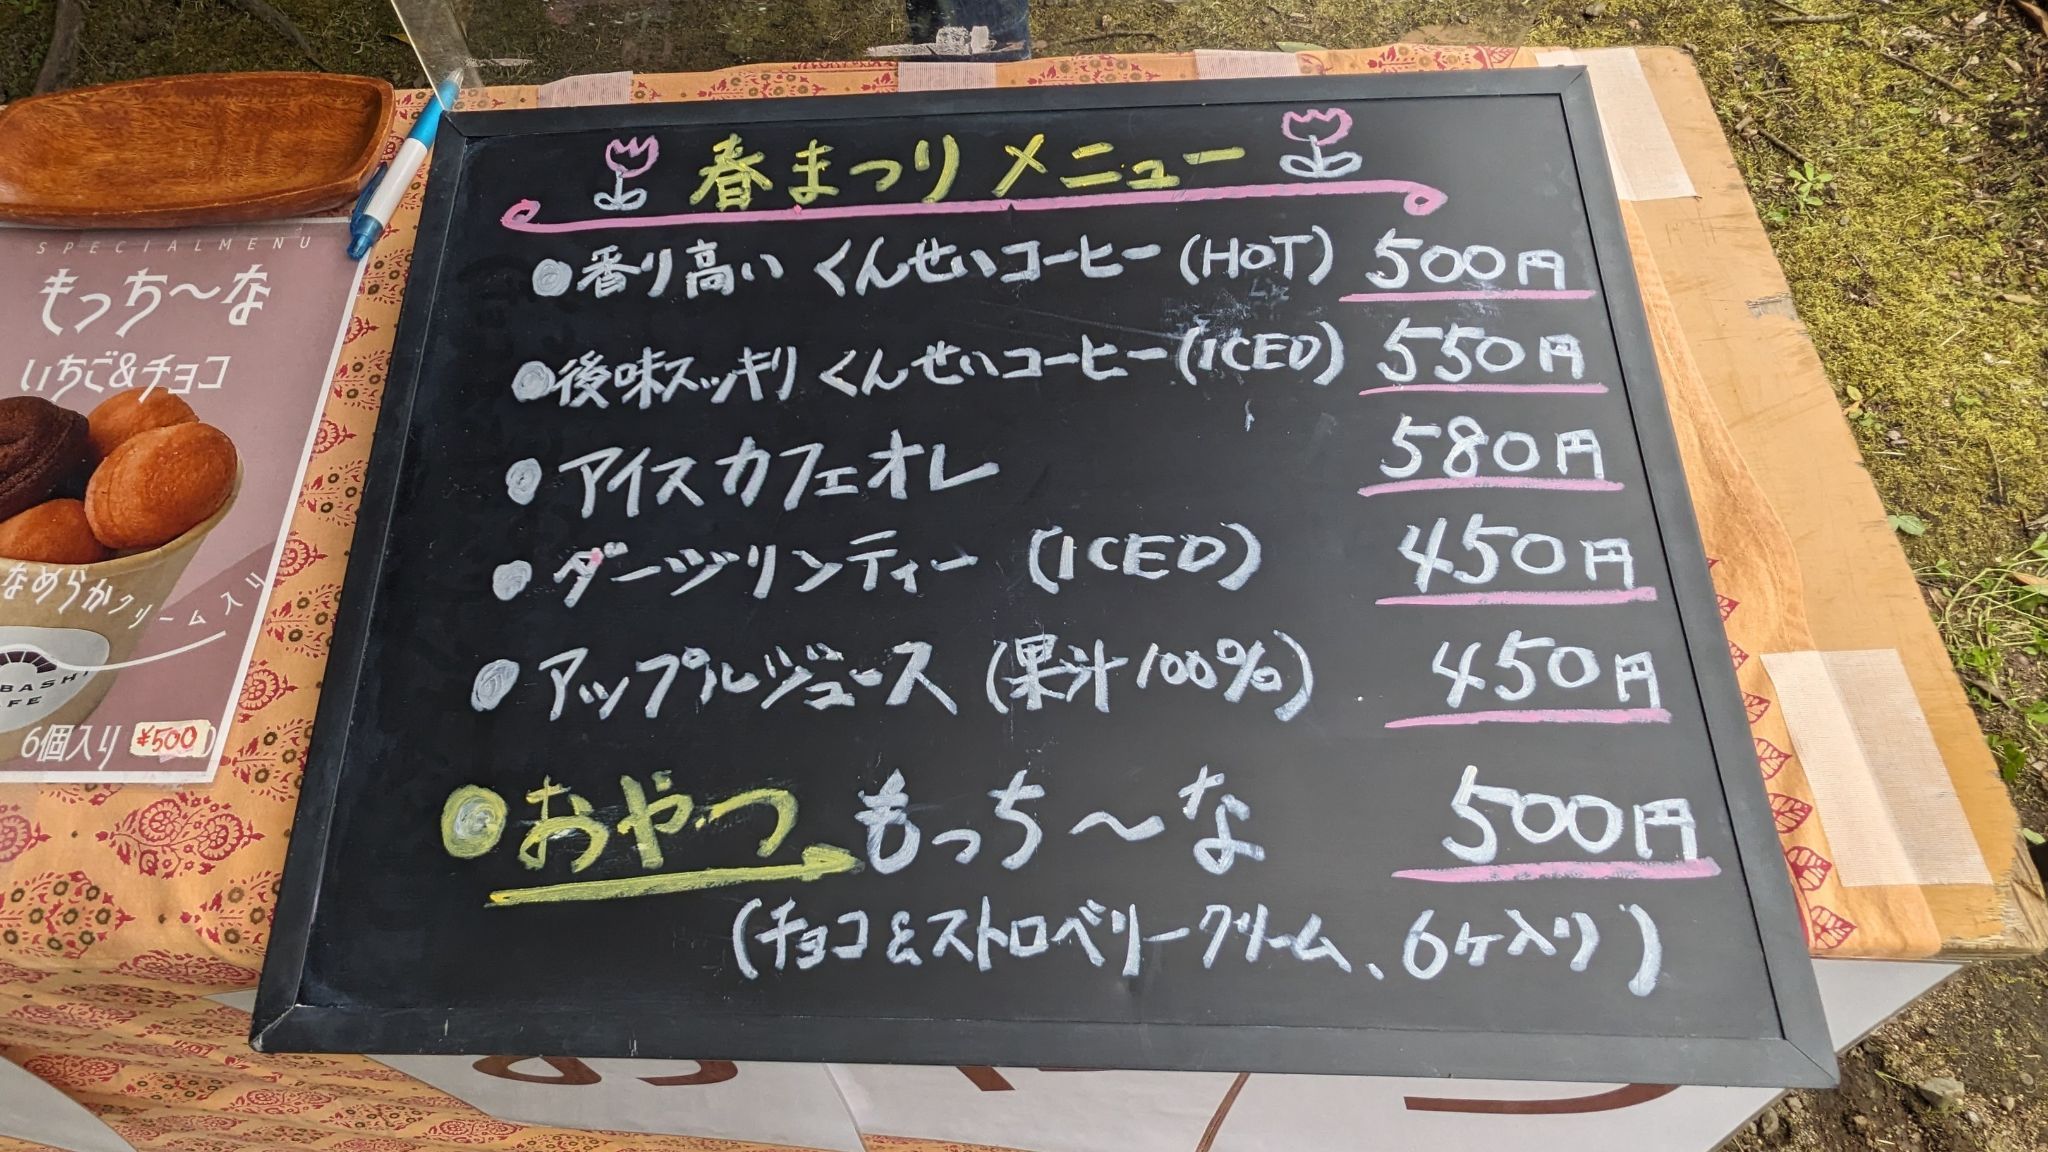 春まつりメニュー
●香り高い くんせいコーヒー(HOT) 500円
●後味スッキリ くんせいコーヒー(ICED) 550円
●アイスカフェオレ 580円
●ダージリンティー (ICED) 450円
●アップルジュース (果汁100%) 450円
●おやつ もっち〜な 500円
(チョコ&ストロベリークリーム、6ヶ入り)
SPECIALMENU
もっち〜な
いちご&チョコ
なめらかクリーム入り
6個入り ¥500